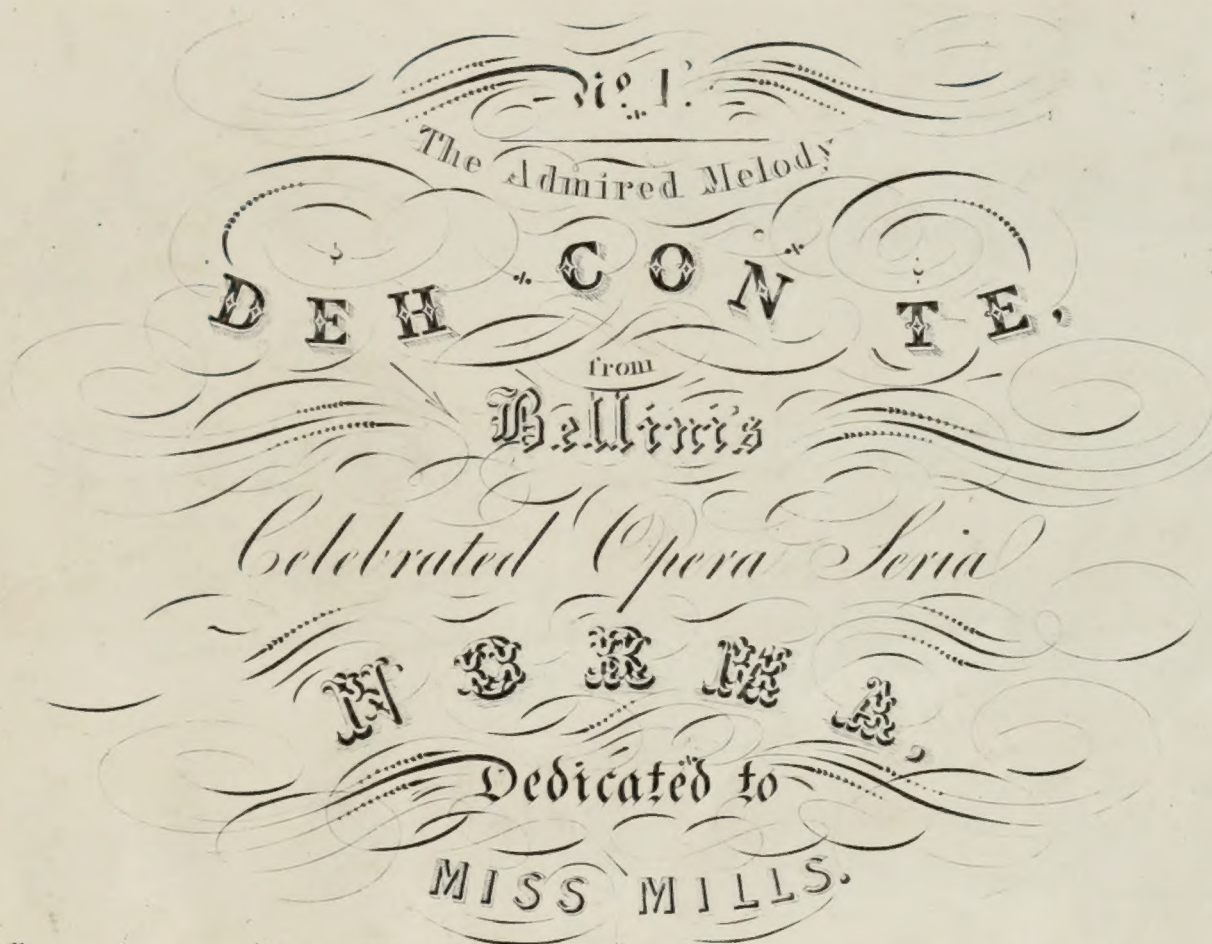 No. 1.
The Admired Melody
DEH CON TE,
from
Bellini's
Celebrated Opera Seria
NORMA,
Dedicated to
MISS MILLS.